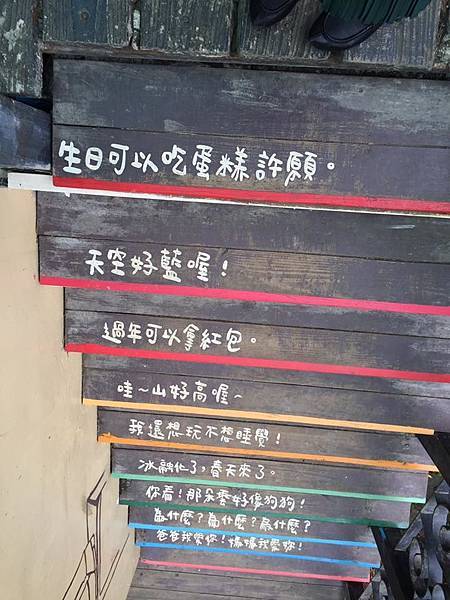 生日可以吃蛋糕許願。
天空好藍喔！
過年可以拿紅包。
哇～山好高喔～
我還想玩不想睡覺！
冰融化了，春天來了。
你看！那朵雲好像狗狗！
為什麼？為什麼？為什麼？
爸爸我愛你！媽媽我愛妳！